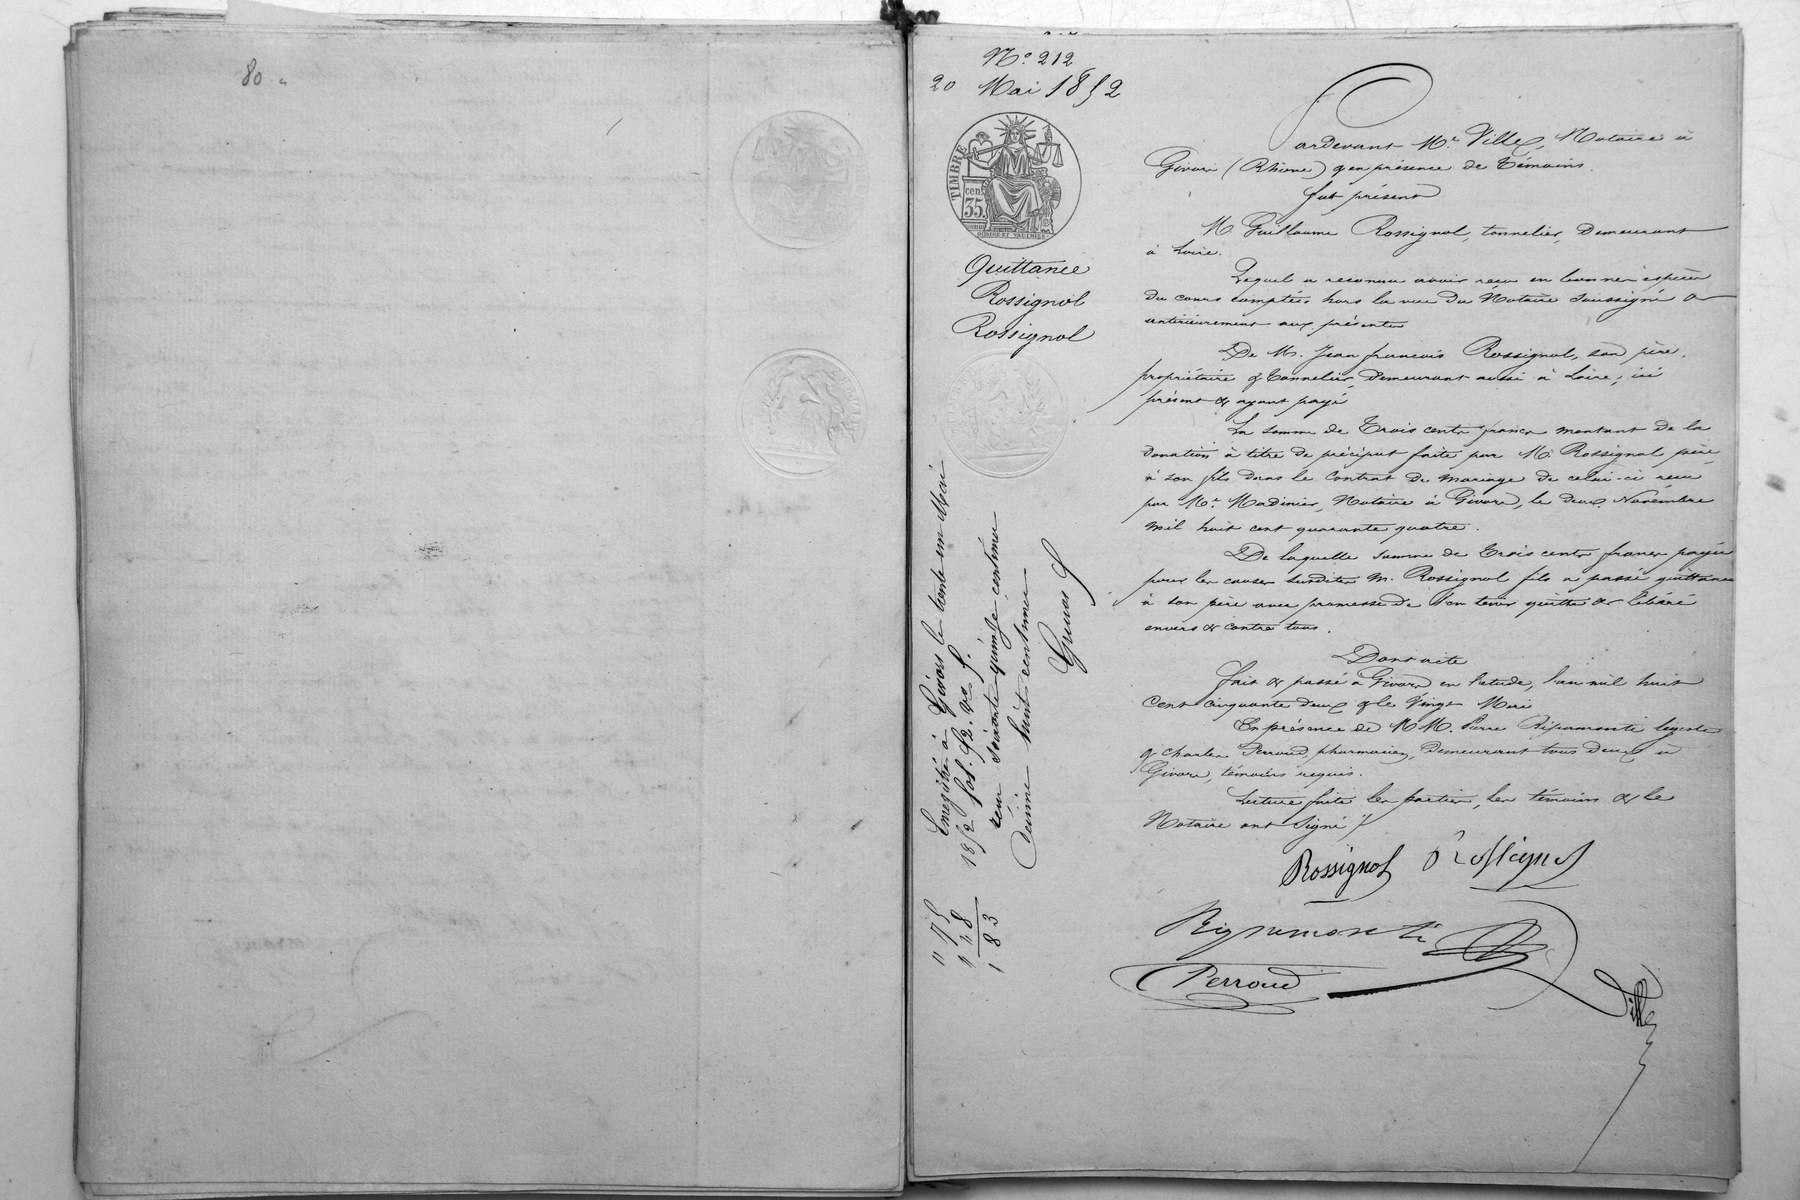 80
N.° 212
20 Mai 1852
TIMBRE
cen.
35.
Quittance
Rossignol
Rossignol
Pardevant Me Ville, Notaire à
Givors (Rhône) & en présence de témoins.
fut présent
M. Guillaume Rossignol, tonnelier, demeurant
à Loire.
Lequel a reconnu avoir reçu en bonnes espèces
du cours comptées hors la vue du Notaire soussigné &
antérieurement aux présentes
De M. Jean françois Rossignol, son père,
propriétaire & tonnelier, demeurant aussi à Loire, ici
présent & ayant payé
La somme de trois cents francs montant de la
donation à titre de préciput faite par M. Rossignol père
à son fils dans le contrat de mariage de celui-ci reçu
par Me Madinier, Notaire à Givors, le deux Novembre
mil huit cent quarante quatre.
De laquelle somme de trois cents francs payée
pour les causes susdites M. Rossignol fils a passé quittance
à son père avec promesse de l'en tenir quitte & libéré
envers & contre tous.
Dont acte
fait & passé à Givors en l'étude, l'an mil huit
cent cinquante deux & le vingt Mai
En présence de MM. Pierre Ripamonti légiste
& Charles Perroud, pharmacien, demeurant tous deux à
Givors, témoins requis.
Lecture faite les parties, les témoins & le
Notaire ont signé
Rossignol Rossignol
Ripamonti
Perroud
Ville
Enregistré à Givors le trente un Mai
1852 fol. 52. vo. f.
reçu soixante quinze centimes
décime huit centimes
" 75
1 48
1 83